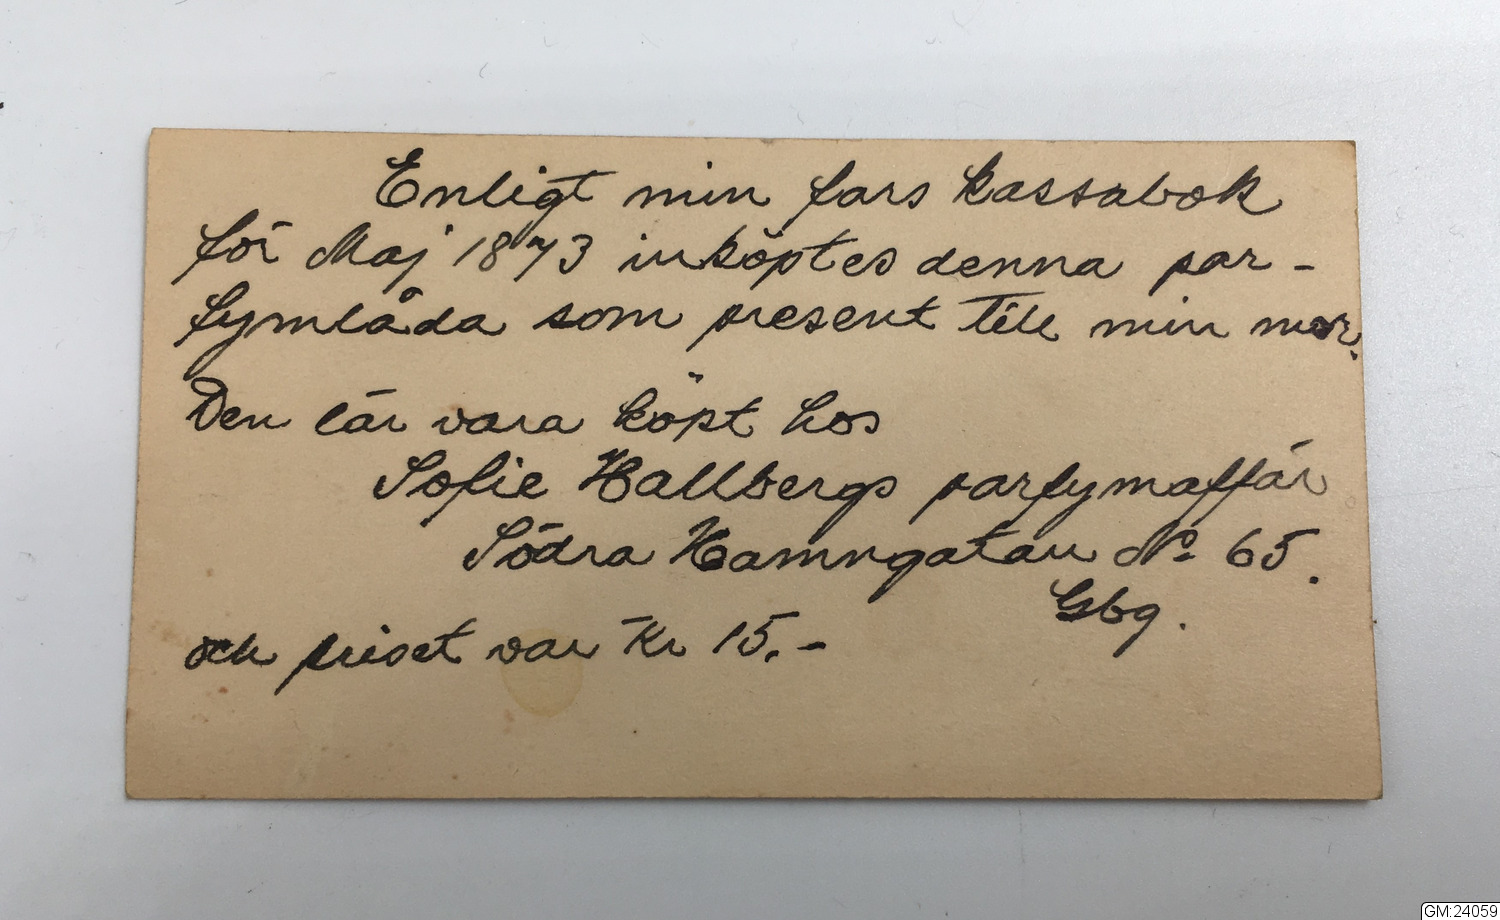 Enligt min fars kassabok
för Maj 1873 inköptes denna par-
fymlåda som present till min mor.
Den lär vara köpt hos
Sofie Hallbergs parfymaffär
Södra Hamngatan No 65.
Gbg.
och priset var Kr 15.-
GM:24059